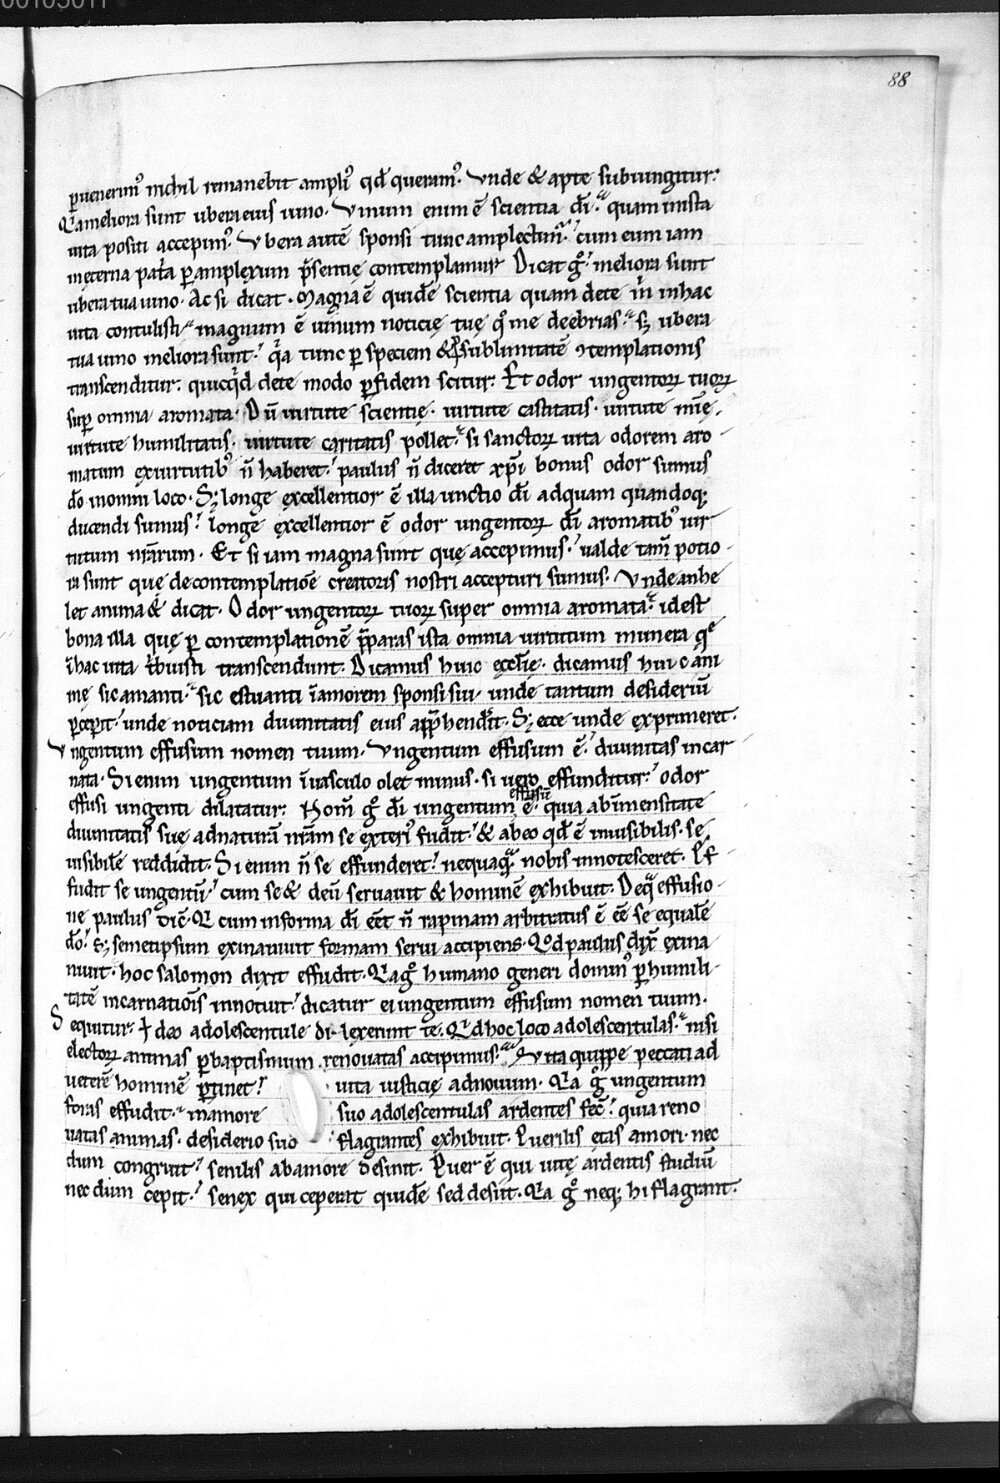 88
puenerim᷒ nichil remanebit ampli᷒ qđ queram᷒. Vnde & apte subiungitur.
Q̄a meliora sunt ubera eius uino. Vinum enim ē scientia dī. quam in ista
uita positi accepim᷒. Vbera autē sponsi tunc amplectim̄. cum eum iam
in eterna pat̄a p amplexum p̄sentię contemplamur. Dicat gͦ. meliora sunt
ubera tua uino. Ac si dicat. Magna ē quidē scientia quam de te m̄ in hac
uita contulisti. magnum ē uinum noticię tuę qͦ me debrias. sꝫ ubera
tua uino meliora sunt. q̄a tunc p speciem & p sublimitatē ꝯtemplationis
transcenditur. quicq̄d de te modo p fidem scitur. Et odor ungentoꝝ tuoꝝ
sup omnia aromata. Dū uirtute scientię. uirtute castitatis. uirtute mīę.
uirtute humilitatis. uirtute caritatis pollet. si sanctoꝝ uita odorem aro
matum ex uirtutib᷒ ñ haberet. paulus ñ diceret xp̄i bonus odor sumus
dō in omni loco. Sꝫ longe excellentior ē illa unctio dī ad quam quandoqꝫ
ducendi sumus. longe excellentior ē odor ungentoꝝ dī aromatib᷒ uir
tutum nr̄arum. Et si iam magna sunt quę accepimus. ualde tam̄ potio
ra sunt quę de contemplatiōe creatoris nostri accepturi sumus. Vnde anhe
let anima & dicat. Odor ungentoꝝ tuoꝝ super omnia aromata. idest
bona illa quę p contemplationē p̄paras ista omnia uirtutum munera q̄
ī hac uita t̄buisti transcendunt. Dicamus huic eccl̄ię. dicamus huic ani
mę sic amanti. sic estuanti ī amorem sponsi sui. unde tantum desideriū
pcepit. unde noticiam diuinitatis eius app̄hendit. Sꝫ ecce unde exprimeret.
Vngentum effusum nomen tuum. Vngentum effusum ē. diuinitas incar
nata. Si enim ungentum ī uasculo olet minus. si uero effunditur. odor
effusi ungenti dilatatur. Nom̄ gͦ dī ungentum effusū ē. quia ab īmensitate
diuinitatis suę ad naturā nr̄am se exteri᷒ fudit. & ab eo qđ ē inuisibilis. se
uisibilē reddidit. Si enim ñ se effunderet. nequaq̄ nobis innotesceret. Ef
fudit se ungentū. cum se & deū seruauit & hominē exhibuit. De q̄ effusio
ne paulus dic̄. Q̄ cum in forma dī eēt ñ rapinam arbitratus ē eē se equalē
dō. sꝫ semetipsum exinaniuit formam serui accipiens. Qđ paulus dix̄ exina
niuit. hoc salomon dixit effudit. Q̄a gͦ humano generi domin᷒ p humili
tatē incarnatiōis innotuit. dicatur ei ungentum effusum nomen tuum.
Sequitur. Ideo adolescentule dilexerunt te. Qd hoc loco adolescentulas. nisi
electoꝝ animas p baptismum renouatas accipimus. Vita quippe peccati ad
ueterē hominē ptinet. uita iusticię ad nouum. Q̄a gͦ ungentum
foras effudit. in amore suo adolescentulas ardentes fec̄. quia reno
uatas animas. desiderio suo flagrantes exhibuit. Puerilis etas amori nec
dum congruit. senilis ab amore desinit. Puer ē qui uitę ardentis studiū
nec dum cepit. senex qui ceperat quidē sed desiit. Q̄a gͦ neqꝫ hi flagrant.